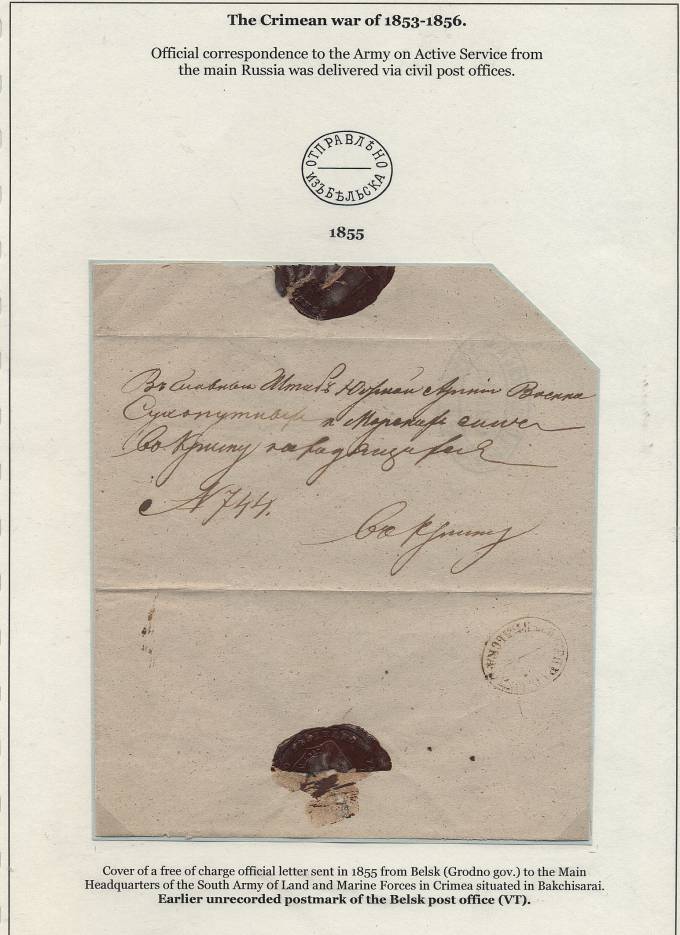 The Crimean war of 1853-1856.
Official correspondence to the Army on Active Service from
the main Russia was delivered via civil post offices.
ОТПРАВЛѢНО
ИЗЪ БѢЛЬСКА
1855
Въ Главный Штабъ Южной Арміи Военно
Сухопутныхъ и Морскихъ силъ
въ Крыму находящихся
№ 744.
въ Крыму
Cover of a free of charge official letter sent in 1855 from Belsk (Grodno gov.) to the Main
Headquarters of the South Army of Land and Marine Forces in Crimea situated in Bakchisarai.
Earlier unrecorded postmark of the Belsk post office (VT).